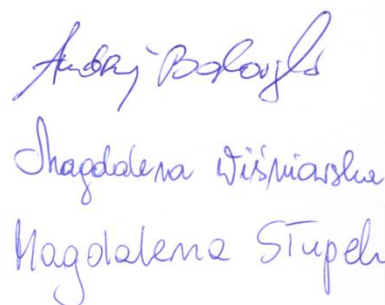 Andrzej
Magdalena Wiśniewska
Magdalena Słupek